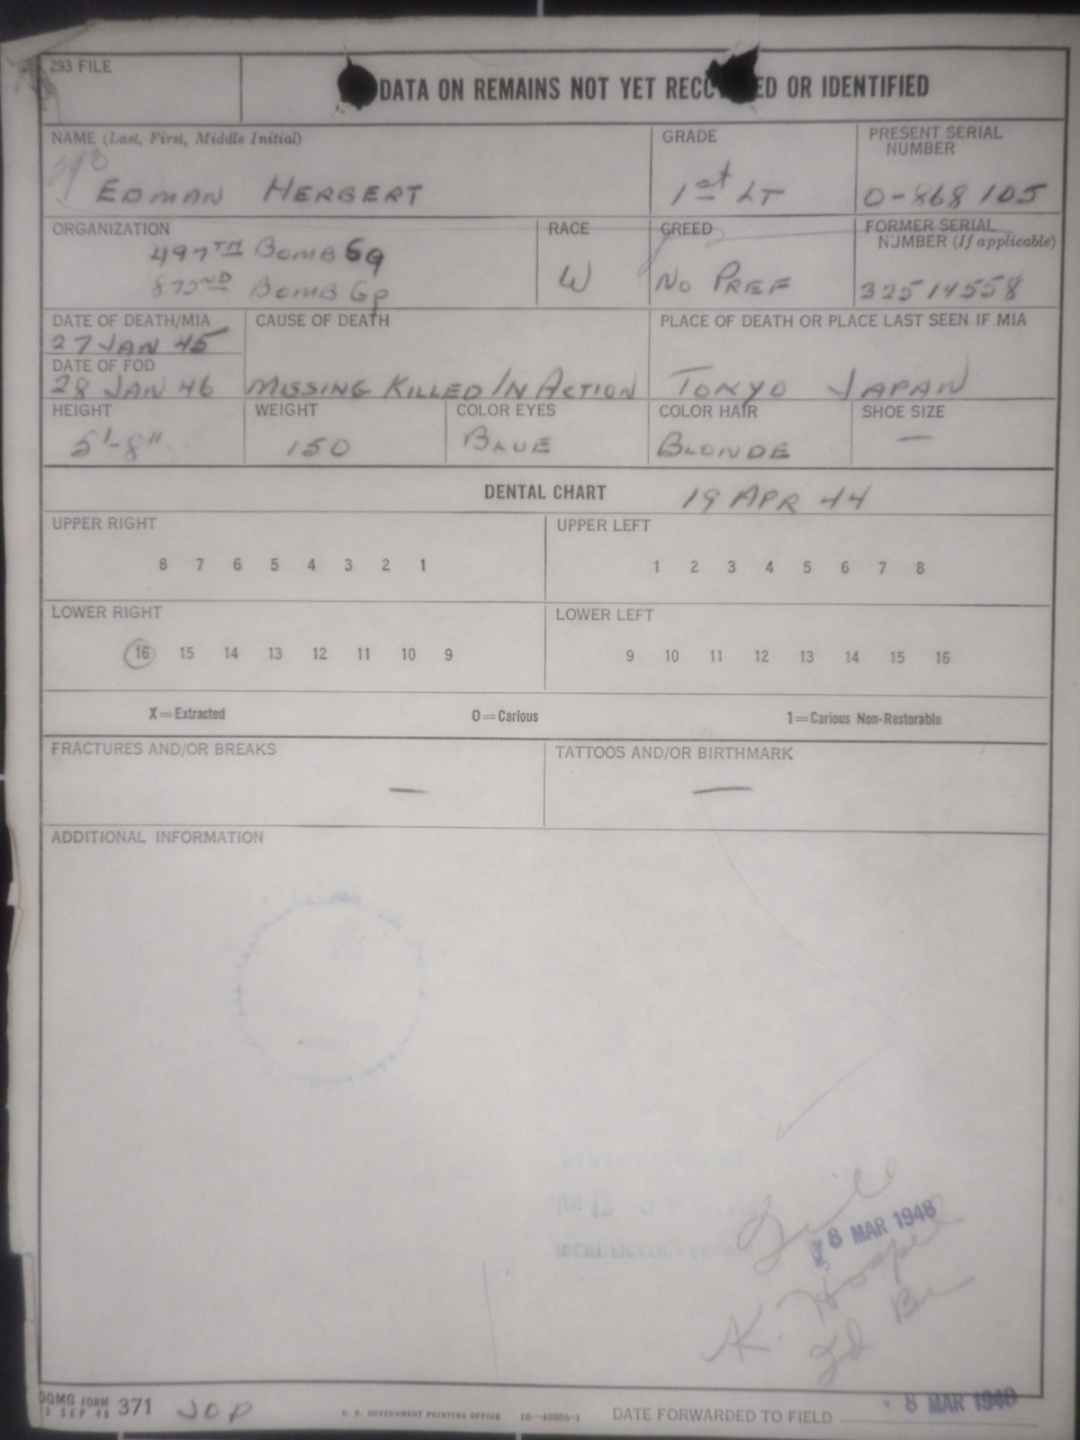 293 FILE
DATA ON REMAINS NOT YET RECO ED OR IDENTIFIED
NAME (Last, First, Middle Initial)
EDMAN HERBERT
GRADE
1st LT
PRESENT SERIAL NUMBER
O-868 105
ORGANIZATION
497TH BOMB GP
872ND BOMB GP
RACE
W
CREED
NO PREF
FORMER SERIAL NUMBER (If applicable)
32514558
DATE OF DEATH/MIA
27 JAN 45
DATE OF FOD
28 JAN 46
CAUSE OF DEATH
MISSING KILLED IN ACTION
PLACE OF DEATH OR PLACE LAST SEEN IF MIA
TOKYO JAPAN
HEIGHT
5'-8"
WEIGHT
150
COLOR EYES
BLUE
COLOR HAIR
BLONDE
SHOE SIZE
—
DENTAL CHART 19 APR 44
UPPER RIGHT
8 7 6 5 4 3 2 1
UPPER LEFT
1 2 3 4 5 6 7 8
LOWER RIGHT
16 15 14 13 12 11 10 9
LOWER LEFT
9 10 11 12 13 14 15 16
X=Extracted
O=Carious
1=Carious Non-Restorable
FRACTURES AND/OR BREAKS
—
TATTOOS AND/OR BIRTHMARK
—
ADDITIONAL INFORMATION
8 MAR 1948
QMG FORM
SEP 46 371 JOP
U. S. GOVERNMENT PRINTING OFFICE
DATE FORWARDED TO FIELD 8 MAR 1948